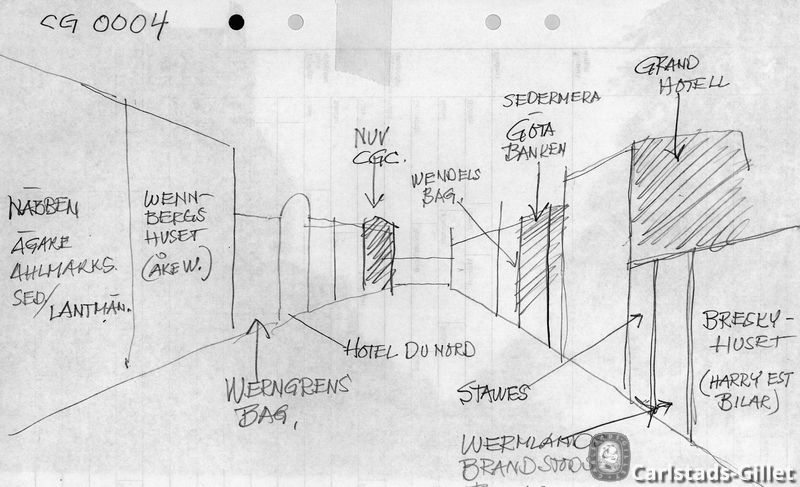 CG 0004
GRAND
HOTELL
SEDERMERA
GÖTA
BANKEN
NUV
CGC.
WENDELS
BAG.
NÄBBEN
ÄGARE
AHLMARKS.
SED/LANTMÄN.
WENN-
BERGS
HUSET
(ÅKE W.)
HOTEL DU NORD
WERNGRENS
BAG,
STAWES
BRESKY-
HUSET
(HARRY EST
BILAR)
WERMLAND
BRANDSTODS
Carlstads-Gillet